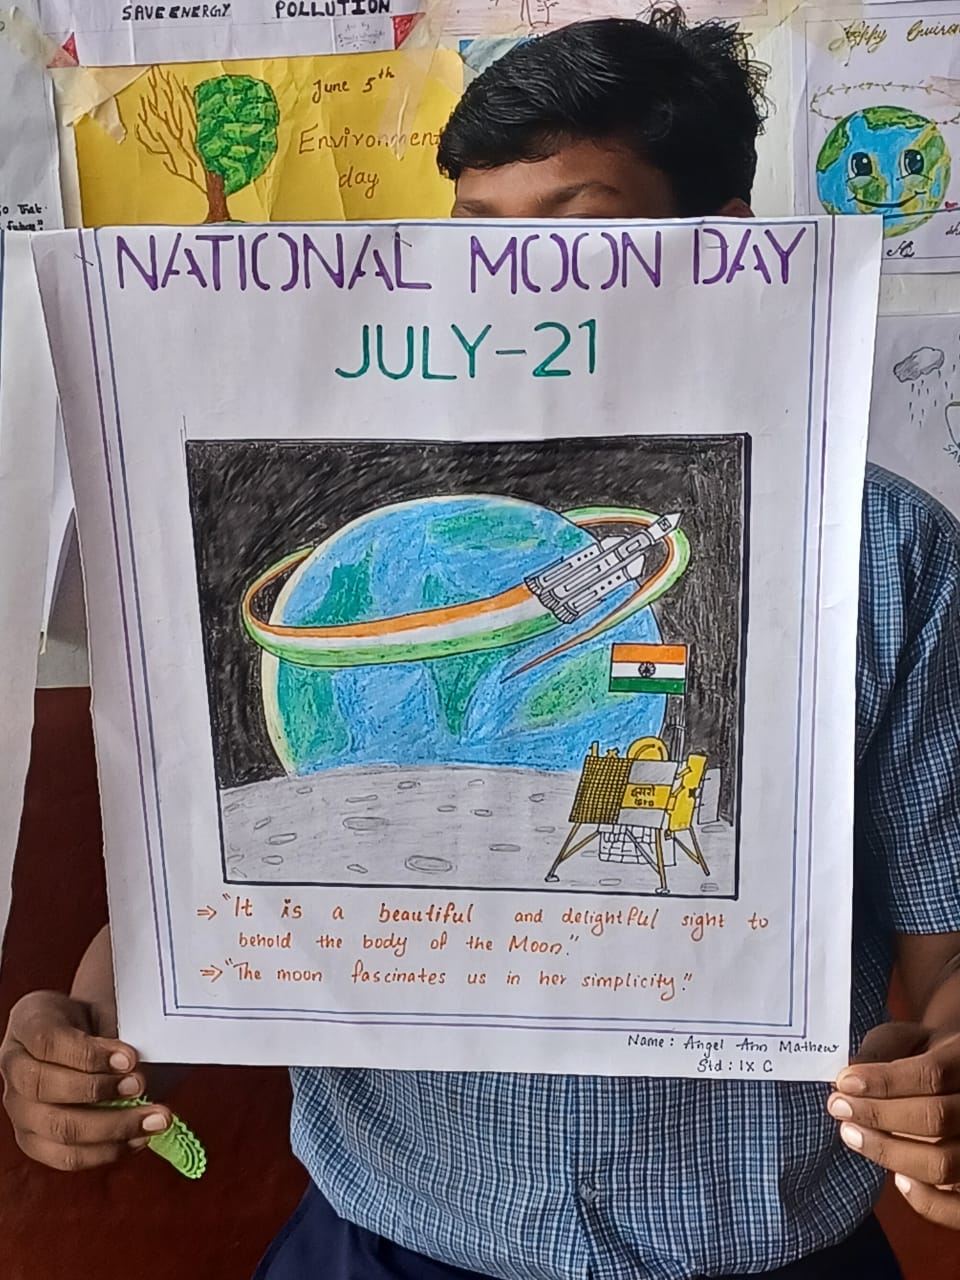 SAVE ENERGY
POLLUTION
June 5th
Environment
day
Happy
NATIONAL MOON DAY
JULY-21
इसरो
isro
⇒ "It is a beautiful and delightful sight to
behold the body of the Moon."
⇒ "The moon fascinates us in her simplicity."
Name: Angel Ann Mathew
Std: IX C